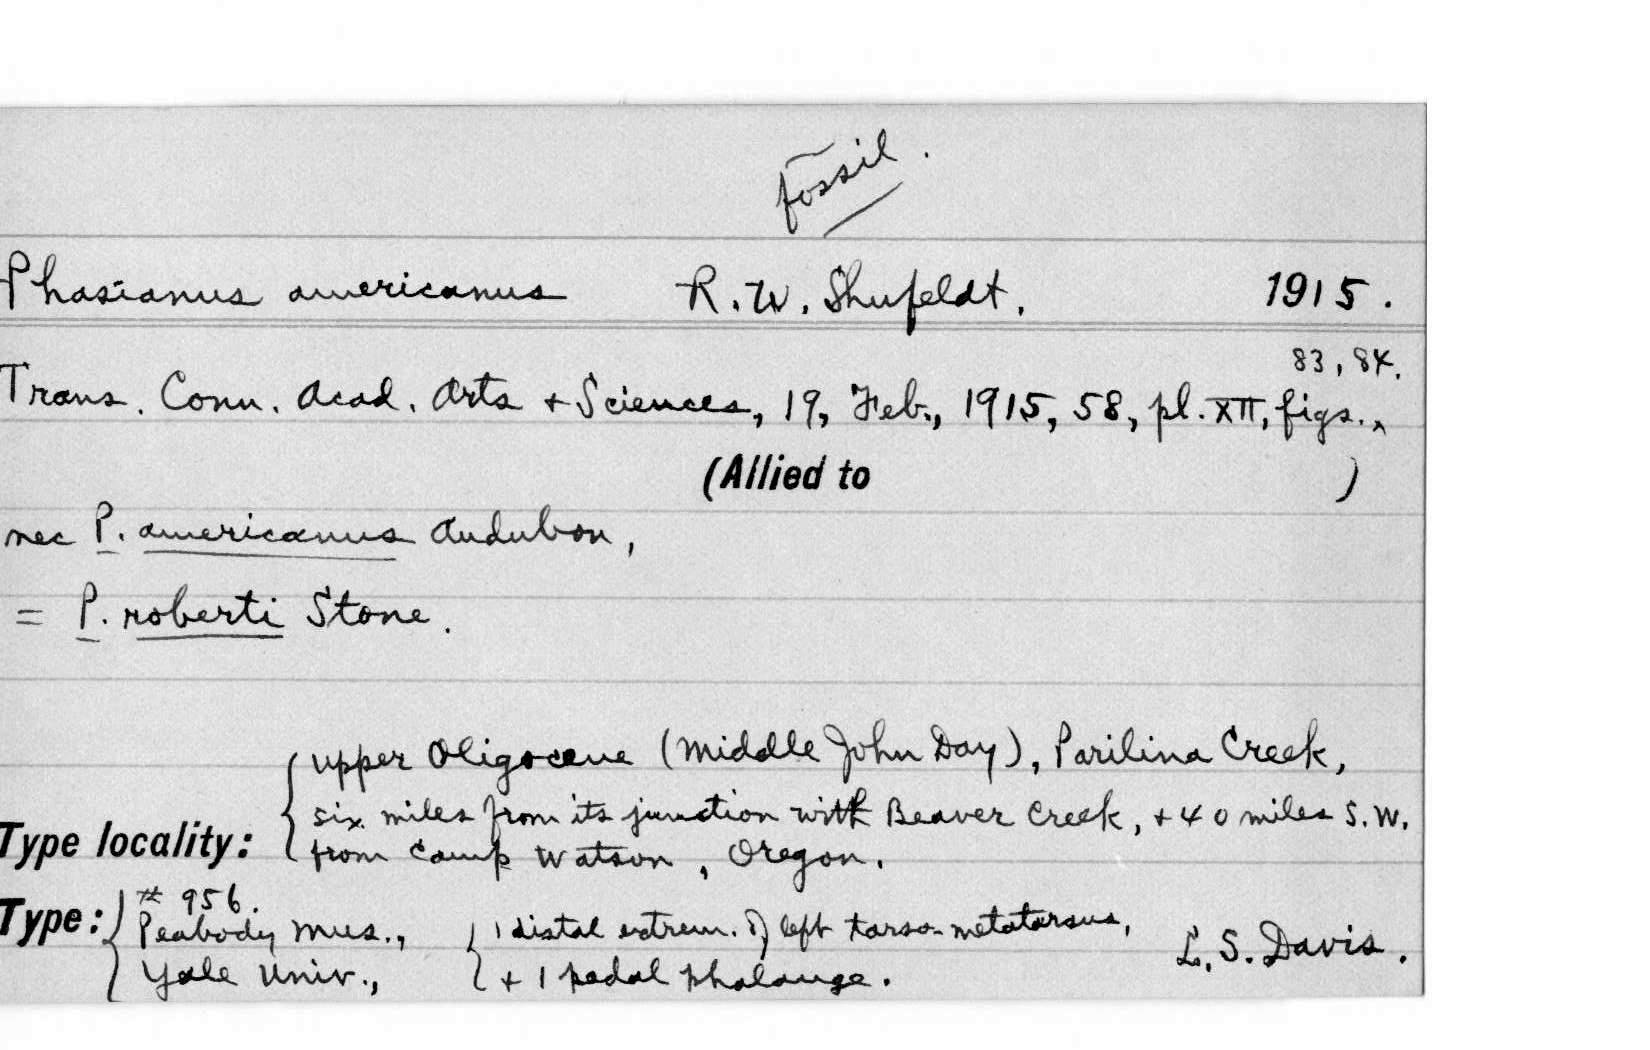 fossil.
Phasianus americanus R. W. Shufeldt. 1915.
83, 84.
Trans. Conn. Acad. Arts + Sciences, 19, Feb., 1915, 58, pl. XII, figs.,^
(Allied to )
nec P. americanus Audubon,
= P. roberti Stone.
upper Oligocene (Middle John Day), Parilina Creek,
six miles from its junction with Beaver Creek, + 40 miles S.W.
Type locality: from Camp Watson, Oregon.
# 956.
Type: Peabody Mus., 1 distal extrem. of left tarso-metatarsus,
Yale Univ., + 1 pedal phalange. L. S. Davis.